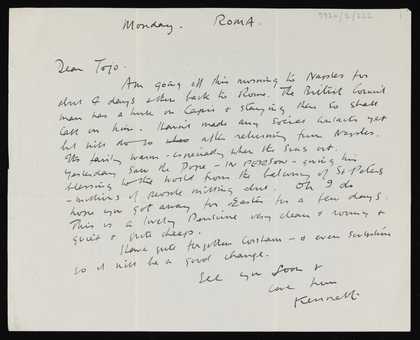 9920/2/222
Monday. ROMA.
Dear Tojo.
Am going off this morning to Naples for
about 4 days & then back to Rome. The British Council
man has a house on Capri & staying there so shall
call on him. Haven't made any social contacts yet
but will do so after returning from Naples.
Its fairly warm - especially when the Sun's out.
Yesterday saw the Pope - IN PERSON - giving his
blessing to the world from the balcony of St Peters
- millions of people milling about. Oh I do
hope you got away for Easter for a few days.
This is a lovely Pensione very clean & roomy &
quiet & quite cheap.
Have quite forgotten Corsham - & even sculpture
so it will be a good change.
See you soon &
love from
Kenneth